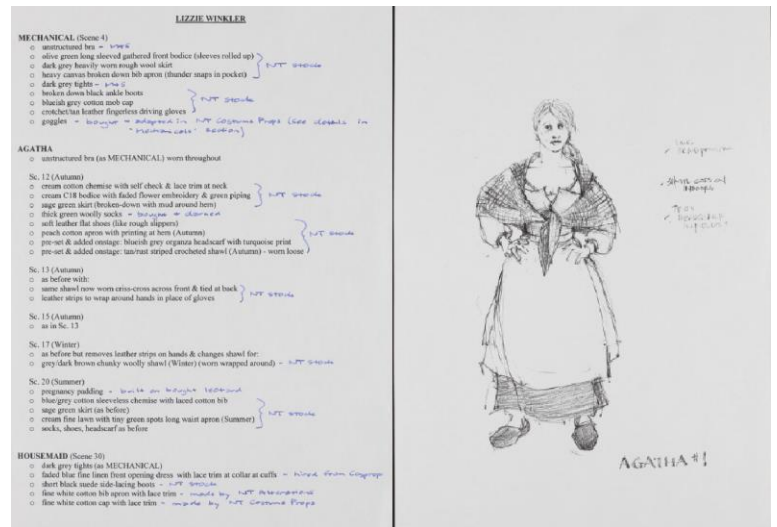 LIZZIE WINKLER
MECHANICAL (Scene 4)
o unstructured bra - M&S
o olive green long sleeved gathered front bodice (sleeves rolled up)
o dark grey heavily worn rough wool skirt
o heavy canvas broken down bib apron (thunder snaps in pocket)
} NT Stock
o dark grey tights - M&S
o broken down black ankle boots
o blueish grey cotton mob cap
o crotchet/tan leather fingerless driving gloves
} NT Stock
o goggles - bought + adapted in NT Costume Props (see details in
"Mechanicals" section)
AGATHA
o unstructured bra (as MECHANICAL) worn throughout
Sc. 12 (Autumn)
o cream cotton chemise with self check & lace trim at neck
o cream C18 bodice with faded flower embroidery & green piping
o sage green skirt (broken-down with mud around hem)
} NT Stock
o thick green woolly socks - bought + darned
o soft leather flat shoes (like rough slippers)
o peach cotton apron with printing at hem (Autumn)
o pre-set & added onstage: blueish grey organza headscarf with turquoise print
o pre-set & added onstage: tan/rust striped crocheted shawl (Autumn) - worn loose
} NT Stock
Sc. 13 (Autumn)
o as before with:
o same shawl now worn criss-cross across front & tied at back
o leather strips to wrap around hands in place of gloves
} NT Stock
Sc. 15 (Autumn)
o as in Sc. 13
Sc. 17 (Winter)
o as before but removes leather strips on hands & changes shawl for:
o grey/dark brown chunky woolly shawl (Winter) (worn wrapped around) - NT Stock
Sc. 20 (Summer)
o pregnancy padding - built on bought leotard
o blue/grey cotton sleeveless chemise with laced cotton bib
o sage green skirt (as before)
o cream fine lawn with tiny green spots long waist apron (Summer)
o socks, shoes, headscarf as before
} NT Stock
HOUSEMAID (Scene 30)
o dark grey tights (as MECHANICAL)
o faded blue fine linen front opening dress with lace trim at collar at cuffs - hired from Cosprop
o short black suede side-lacing boots - NT Stock
o fine white cotton bib apron with lace trim - made by NT Alterations
o fine white cotton cap with lace trim - made by NT Costume Props
AGATHA #1